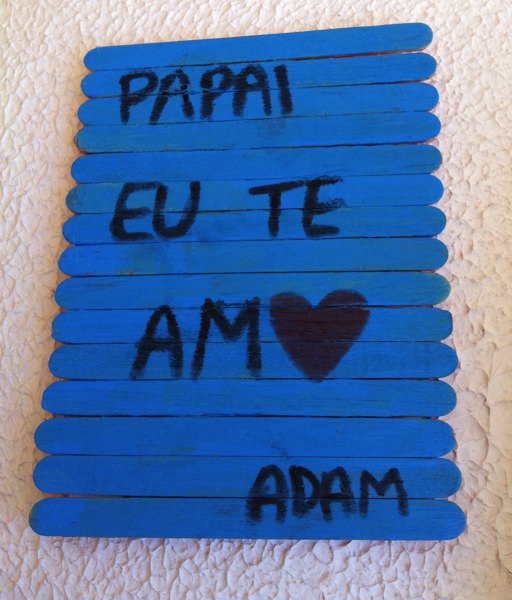 PAPAI
EU TE
AM♥
ADAM